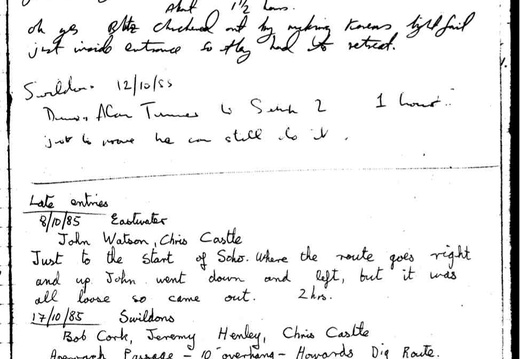 About 1½ hours.
oh yes Pete chickened out by making Karens light fail
just inside entrance so they had to retreat.
Swildons 12/10/85
Alan Turner to Sump 2 1 hour..
just to prove he can still do it.
Late entries
8/10/85 Eastwater
John Watson, Chris Castle
Just to the start of Soho. Where the route goes right
and up John went down and left, but it was
all loose so came out. 2hrs.
17/10/85 Swildons
Bob Cork, Jeremy Henley, Chris Castle
Approach Passage – 10' overhang – Howards Dig Route.